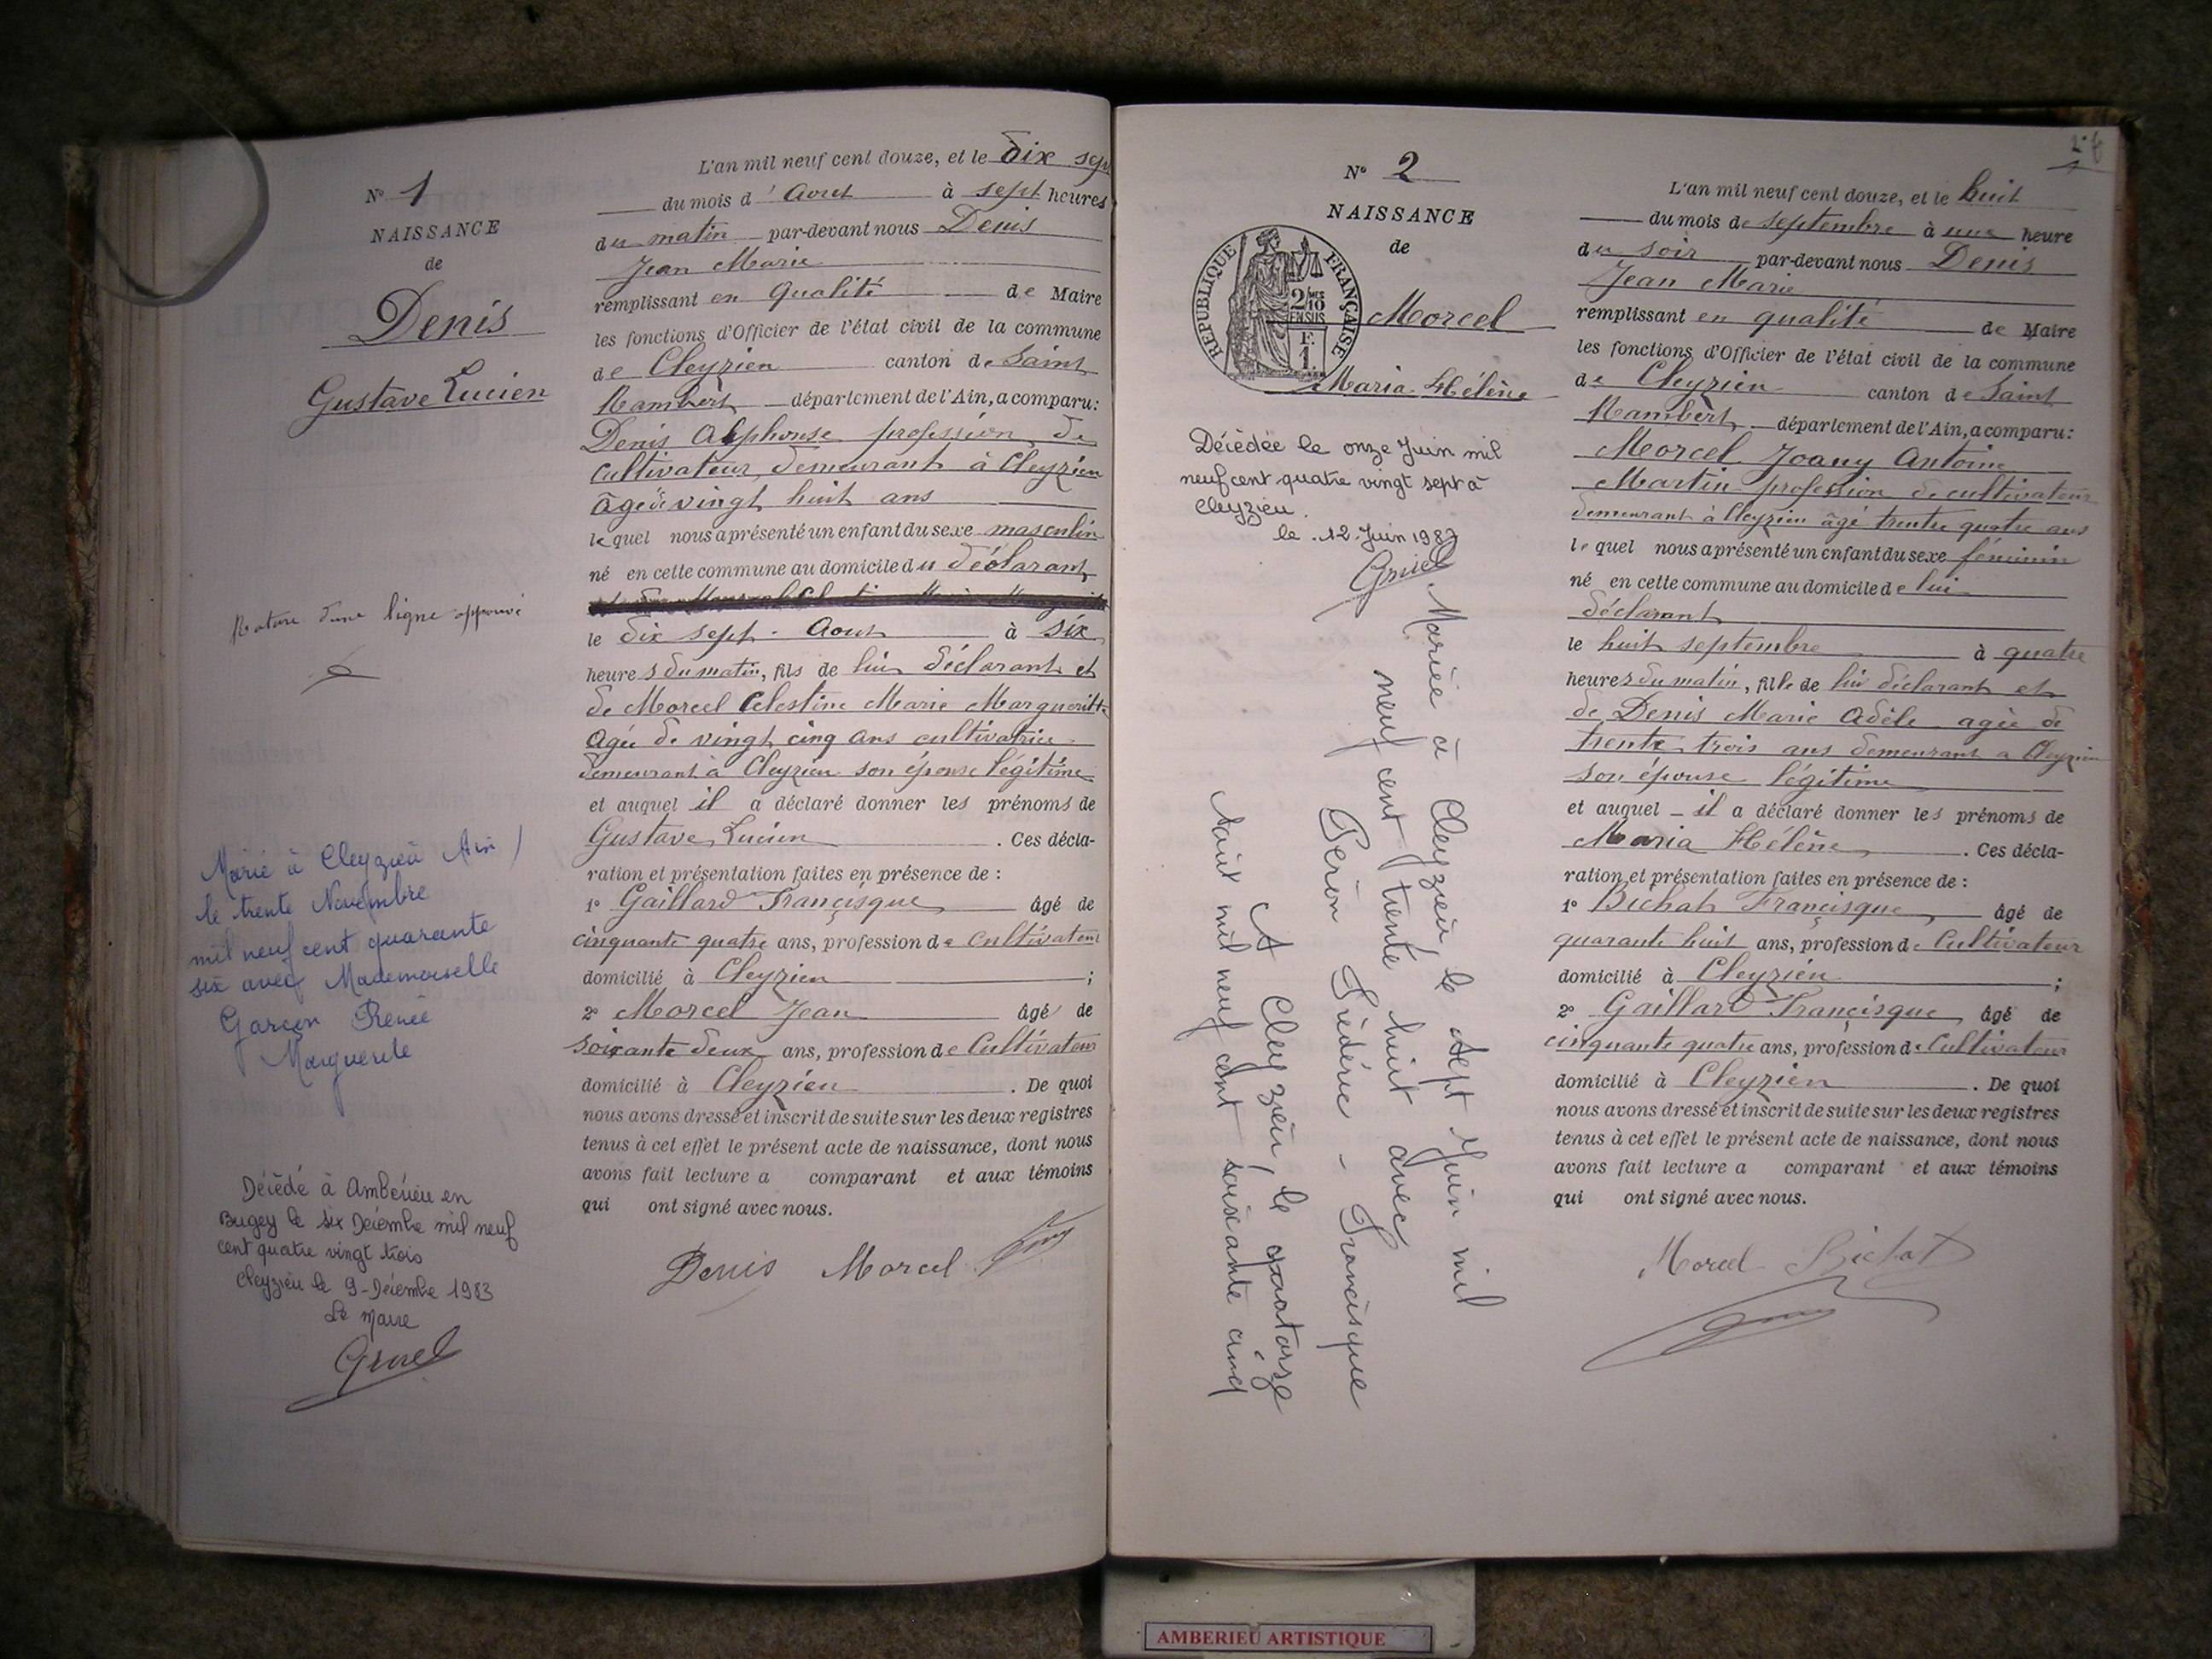 N° 1
NAISSANCE
de
Denis
Gustave Lucien
Rature d'une ligne approuvé
Marié à Cleyzieu Ain
le trente Novembre
mil neuf cent quarante
six avec Mademoiselle
Garçon Renée
Marguerite
Décédé à Ambérieu en
Bugey le six Décembre mil neuf
cent quatre vingt trois
Cleyzieu le 9 - Décembre 1983
Le Maire
Gruel
L'an mil neuf cent douze, et le dix sept
du mois d' Aout à sept heures
du matin par-devant nous Denis
Jean Marie
remplissant en Qualité de Maire
les fonctions d'Officier de l'état civil de la commune
de Cleyzieu canton de Saint
Rambert département de l'Ain, a comparu:
Denis Alphonse profession de
cultivateur, demeurant à Cleyzieu
âgé de vingt huit ans
lequel nous a présenté un enfant du sexe masculin
né en cette commune au domicile du déclarant
le dix sept Aout à six
heures du matin, fils de lui déclarant et
de Morcel Célestine Marie Marguerite
Agée de vingt cinq ans cultivatrice
demeurant à Cleyzieu son épouse légitime
et auquel il a déclaré donner les prénoms de
Gustave Lucien . Ces décla-
ration et présentation faites en présence de :
1° Gaillard Françisque âgé de
cinquante quatre ans, profession de Cultivateur
domicilié à Cleyzieu ;
2° Morcel Jean âgé de
soixante deux ans, profession de Cultivateur
domicilié à Cleyzieu . De quoi
nous avons dressé et inscrit de suite sur les deux registres
tenus à cet effet le présent acte de naissance, dont nous
avons fait lecture a comparant et aux témoins
qui ont signé avec nous.
Denis Morcel
N° 2
NAISSANCE
de
RÉPUBLIQUE FRANÇAISE
2/10
EN SUS
F.
1.
Morcel
Maria Hélène
Décédée le onze Juin mil
neuf cent quatre vingt sept à
Cleyzieu.
le 12 Juin 1987
Gruel
Mariée à Cleyzieu le sept Juin mil
neuf cent trente huit avec
Peron Frédéric - Francisque
A Cleyzieu, le quatorze
Aout mil neuf cent soixante cinq
L'an mil neuf cent douze, et le huit
du mois de septembre à une heure
du soir par-devant nous Denis
Jean Marie
remplissant en qualité de Maire
les fonctions d'Officier de l'état civil de la commune
de Cleyzieu canton de Saint
Rambert département de l'Ain, a comparu:
Morcel Joany Antoine
Martin profession de cultivateur
demeurant à Cleyzieu âgé trente quatre ans
lequel nous a présenté un enfant du sexe féminin
né en cette commune au domicile de lui
déclarant
le huit septembre à quatre
heures du matin, fille de lui déclarant et
de Denis Marie Adèle agée de
trente trois ans demeurant a Cleyzieu
son épouse légitime
et auquel il a déclaré donner les prénoms de
Maria Hélène . Ces décla-
ration et présentation faites en présence de :
1° Bichat Françisque âgé de
quarante huit ans, profession de Cultivateur
domicilié à Cleyzieu ;
2° Gaillard Françisque âgé de
cinquante quatre ans, profession de Cultivateur
domicilié à Cleyzieu . De quoi
nous avons dressé et inscrit de suite sur les deux registres
tenus à cet effet le présent acte de naissance, dont nous
avons fait lecture a comparant et aux témoins
qui ont signé avec nous.
Morcel Bichat
AMBERIEU ARTISTIQUE